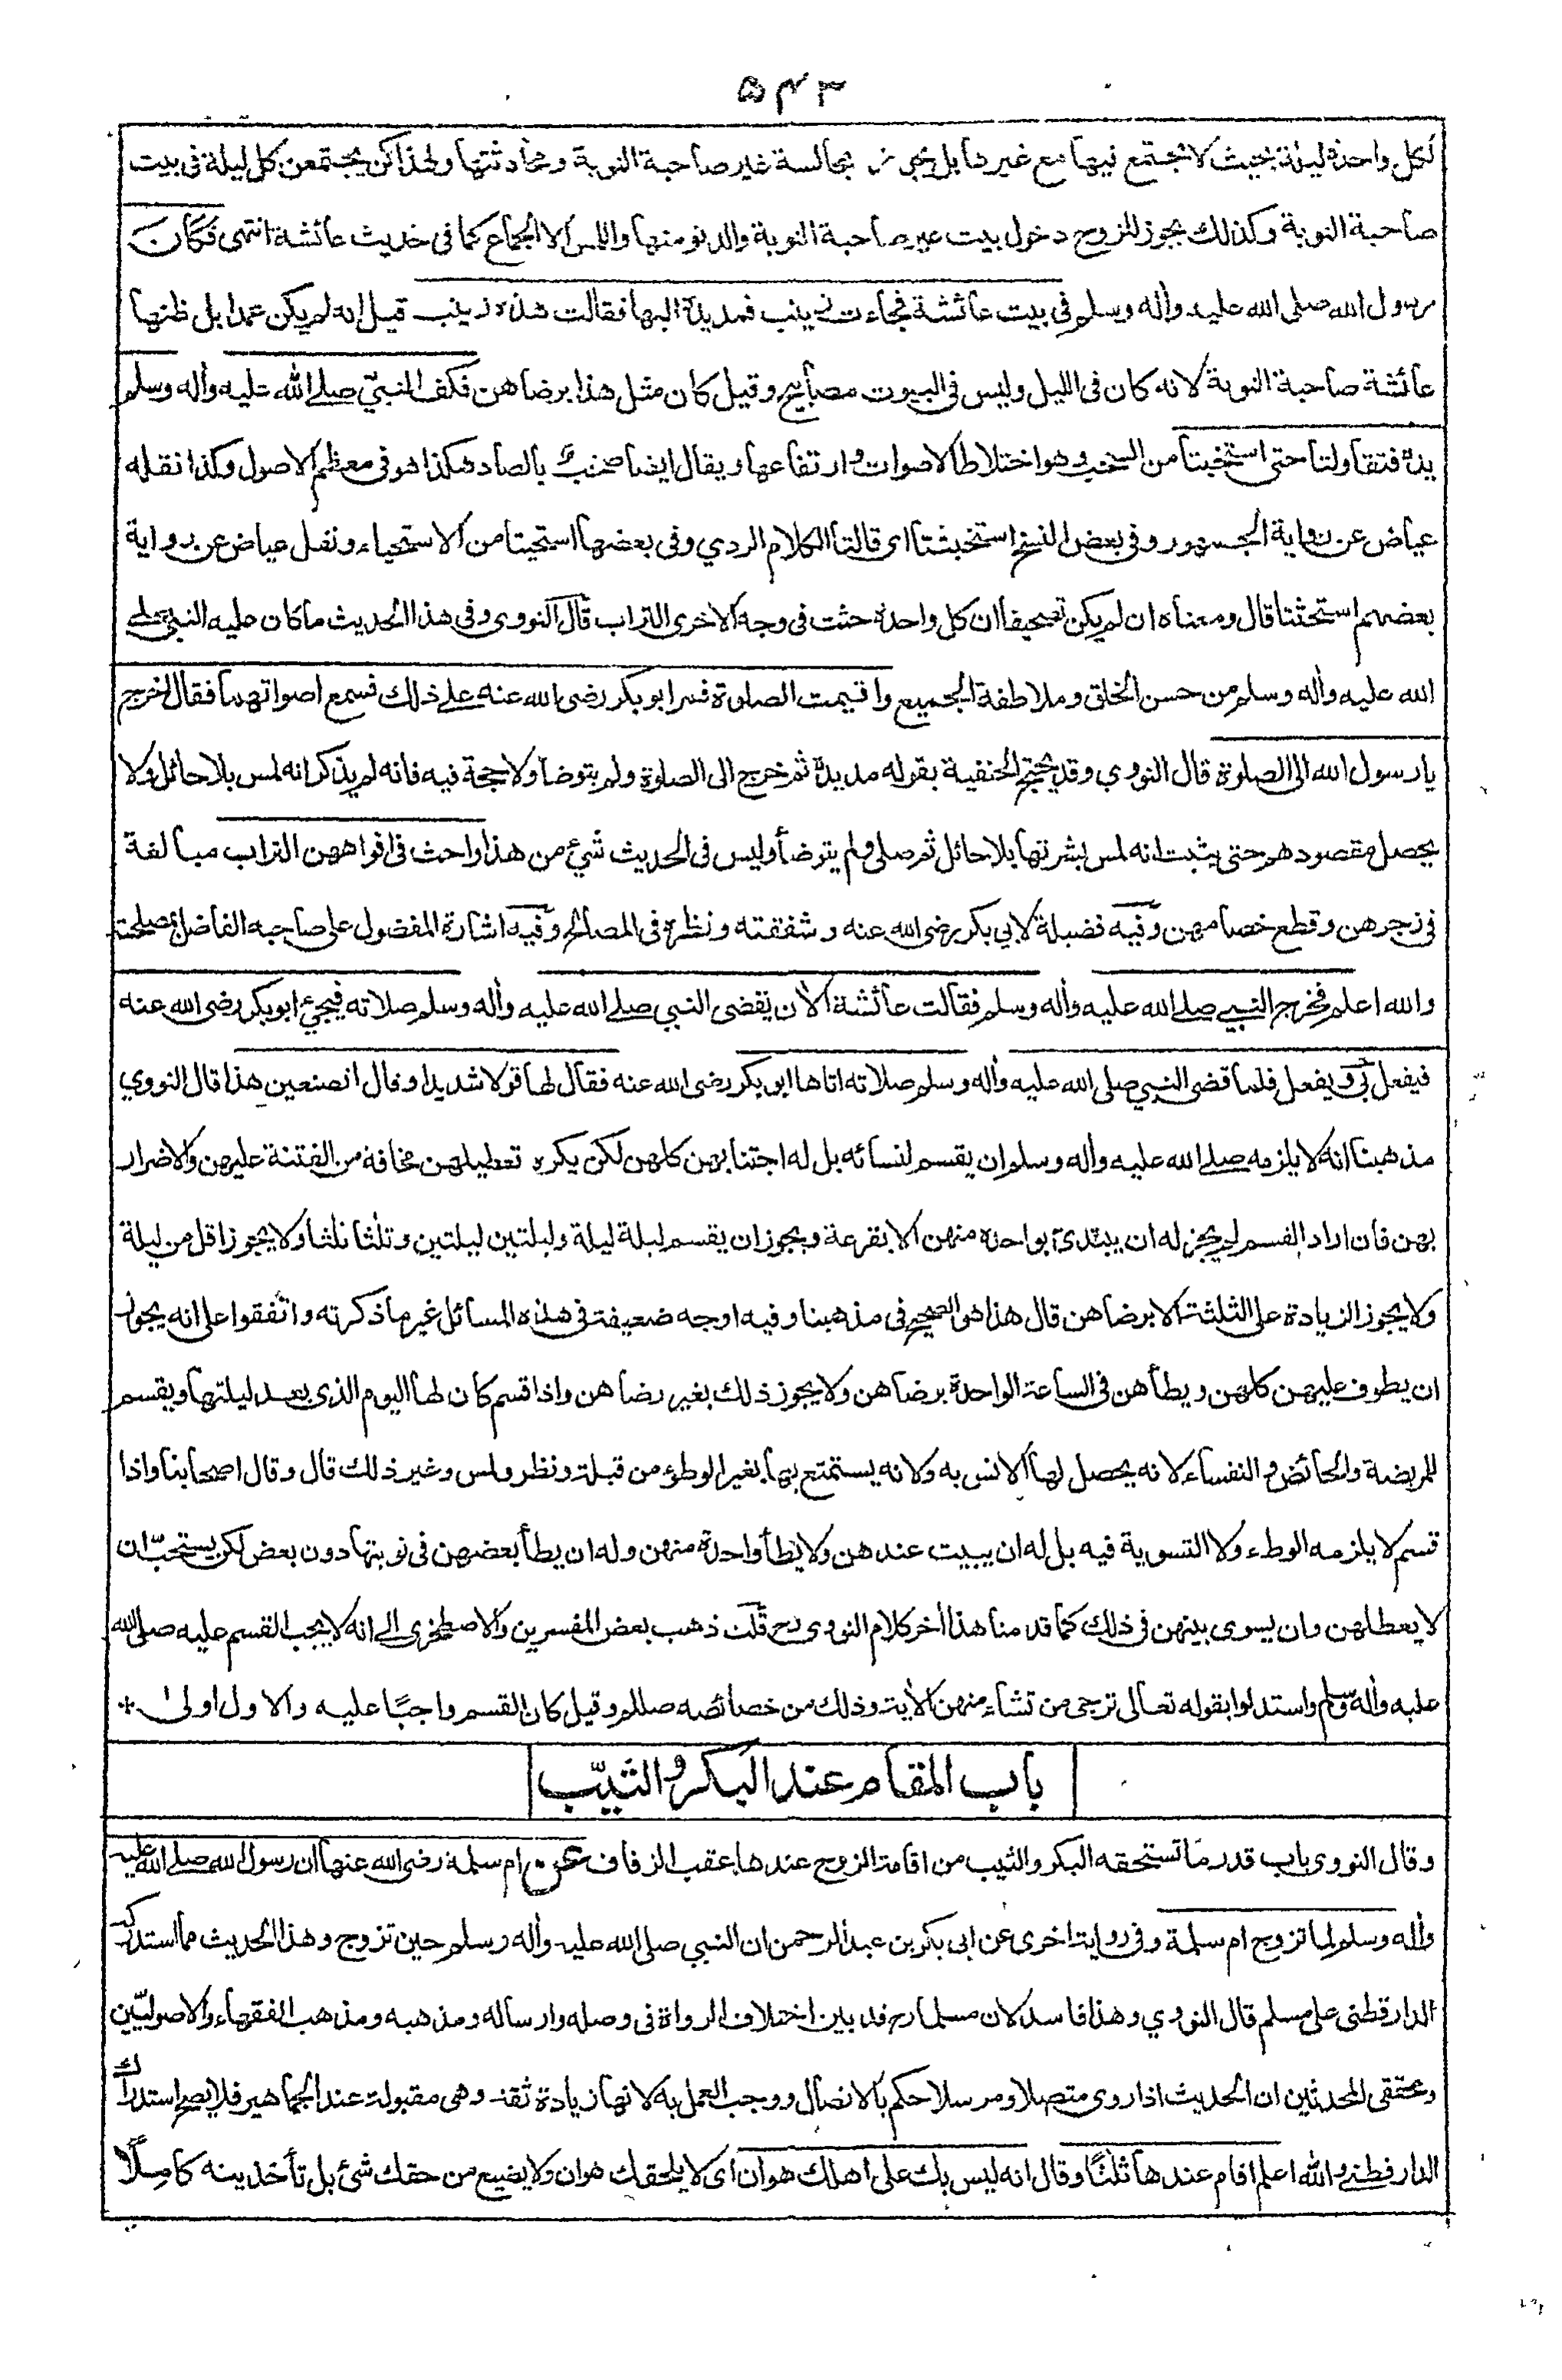 ۵۴۳
لكل واحدة ليلة بحيث لا تجتمع فيها مع غيرها بل يجوز مجالسة غير صاحبة النوبة ومحادثتها ولهذا كن يجتمعن كل ليلة فى بيت
صاحبة النوبة وكذلك يجوز للزوج دخول بيت غير صاحبة النوبة والدنو منها واللمس الا الجماع كما فى حديث عائشة انتهى فكان
رسول الله صلى الله عليه واٰله وسلم فى بيت عائشة فجاءت زينب فمد يده اليها فقالت هذه زينب قيل انه لم يكن عمدا بل ظنها
عائشة صاحبة النوبة لانه كان فى الليل وليس فى البيوت مصابيح وقيل كان مثل هذا برضاهن فكف النبي صلى الله عليه واٰله وسلم
يده فتقاولتا حتى استخبتا من السخب وهو اختلاط الاصوات وارتفاعها ويقال ايضا صخب بالصاد هكذا هو فى معظم الاصول وكذا نقله
عياض عن رواية الجمهور وفى بعض النسخ استخبثتا اى قالتا الكلام الردي وفى بعضها استحيتا من الاستحياء ونقل عياض عن رواية
بعضهم استحثتا قال ومعناه ان لم يكن تصحيفا ان كل واحدة حثت فى وجه الاخرى التراب قال النووى وفى هذا الحديث ماكان عليه النبي صلى
الله عليه واٰله وسلم من حسن الخلق وملاطفة الجميع واقيمت الصلوة فمر ابو بكر رضى الله عنه على ذلك فسمع اصواتهما فقال اخرج
يا رسول الله الى الصلوة قال النووي وقد يحتج الحنفية بقوله مد يده ثم خرج الى الصلوة ولم يتوضأ ولا حجة فيه فانه لم يذكر انه لمس بلا حائل ولا
يحصل مقصودهم حتى يثبت انه لمس بشرتها بلا حائل ثم صلى ولم يتوضأ وليس فى الحديث شئ من هذا واحث فى افواههن التراب مبالغة
فى زجرهن وقطع خصامهن وفيه فضيلة لابي بكر رضى الله عنه وشفقته ونظره فى المصالح وفيه اشارة المفضول على صاحبه الفاضل بمصلحته
والله اعلم فخرج النبي صلى الله عليه واٰله وسلم فقالت عائشة الاٰن يقضى النبي صلى الله عليه واٰله وسلم صلاته فيجئ ابو بكر رضى الله عنه
فيفعل بى ويفعل فلما قضى النبي صلى الله عليه واٰله وسلم صلاته اتاها ابو بكر رضى الله عنه فقال لها قولا شديدا وقال اتصنعين هذا قال النووي
مذهبنا انه لا يلزمه صلى الله عليه واٰله وسلم ان يقسم لنسائه بل له اجتنابهن كلهن لكن يكره تعطيلهن مخافة من الفتنة عليهن والاضرار
بهن فان اراد القسم لم يجز له ان يبتدئ بواحدة منهن الا بقرعة ويجوز ان يقسم ليلة ليلة وليلتين ليلتين وثلثا ثلثا ولا يجوز اقل من ليلة
ولا يجوز الزيادة على الثلثة الا برضاهن قال هذا هو الصحيح فى مذهبنا وفيه اوجه ضعيفة فى هذه المسائل غير ما ذكرته واتفقوا على انه يجوز
ان يطوف عليهن كلهن ويطأهن فى الساعة الواحدة برضاهن ولا يجوز ذلك بغير رضاهن واذا قسم كان لها اليوم الذى بعد ليلتها ويقسم
للمريضة والحائض والنفساء لانه يحصل لها الانس به ولانه يستمتع بها بغير الوطؤ من قبلة ونظر ولمس وغير ذلك قال وقال اصحابنا واذا
قسم لا يلزمه الوطء ولا التسوية فيه بل له ان يبيت عندهن ولا يطأ واحدة منهن وله ان يطأ بعضهن فى نوبتها دون بعض لكن يستحبّ ان
لا يعطلهن وان يسوى بينهن فى ذلك كما قدمنا هذا اٰخر كلام النووى رح قلت ذهب بعض المفسرين والاصطخرى الى انه لا يجب القسم عليه صلى الله
عليه واٰله وسلم واستدلوا بقوله تعالى ترجى من تشاء منهن الاٰية وذلك من خصائصه صللم وقيل كان القسم واجبًا عليه والاول اولىٰ *
باب المقام عند البكر والثيّب
وقال النووى باب قدر ما تستحقه البكر والثيب من اقامة الزوج عندها عقب الزفاف عن ام سلمة رضى الله عنها ان رسول الله صلى الله عليه
واٰله وسلم لما تزوج ام سلمة وفى رواية اخرى عن ابى بكر بن عبد الرحمن ان النبي صلى الله عليه واٰله وسلم حين تزوج وهذا الحديث مما استدركه
الدارقطنى على مسلم قال النووي وهذا فاسد لان مسلما رح قد بين اختلاف الرواة فى وصله وارساله ومذهبه ومذهب الفقهاء والاصوليّين
ومحققى المحدثين ان الحديث اذا روى متصلا ومرسلا حكم بالاتصال ووجب العمل به لانها زيادة ثقة وهى مقبولة عند الجماهير فلا يصح استدراك
الدارقطنى والله اعلم اقام عندها ثلثًا وقال انه ليس بك على اهلك هوان اى لا يلحقك هوان ولا يضيع من حقك شئ بل تأخذينه كاملًا